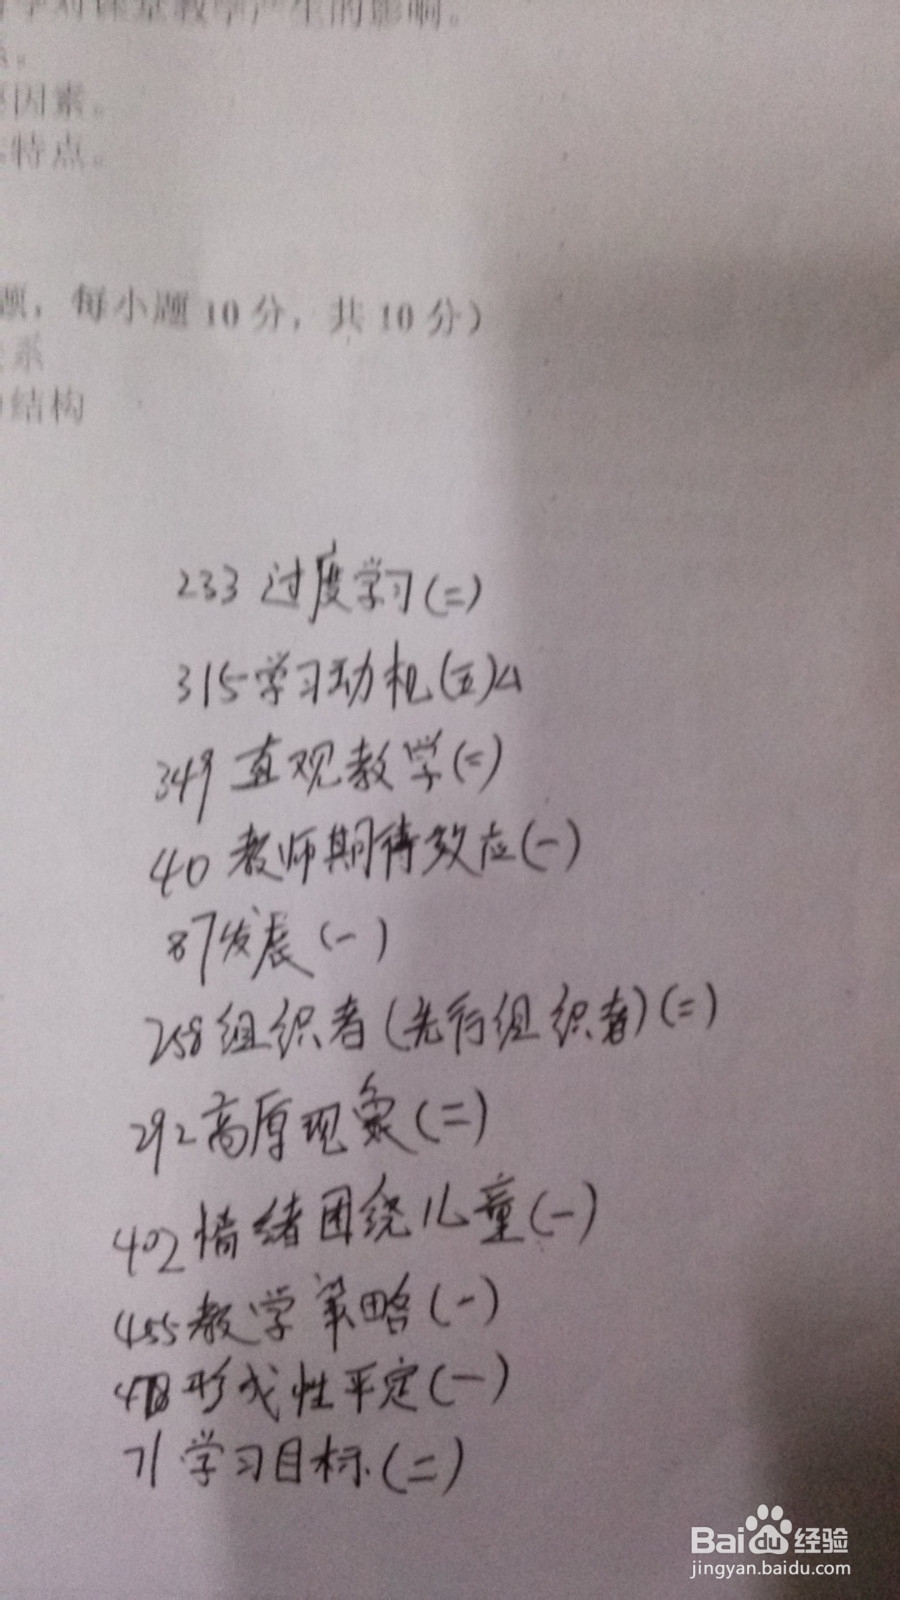 对课堂教学产生的影响。
因素。
特点。
题，每小题10分，共10分）
系
结构
233 过度学习(二)
315学习动机(五)4
349 直观教学(二)
40 教师期待效应(一)
87发展(一)
258组织者(先行组织者)(二)
292高原现象(二)
402情绪困绕儿童(一)
455教学策略(一)
478形成性平定(一)
71学习目标(二)
Baidu经验
jingyan.baidu.com